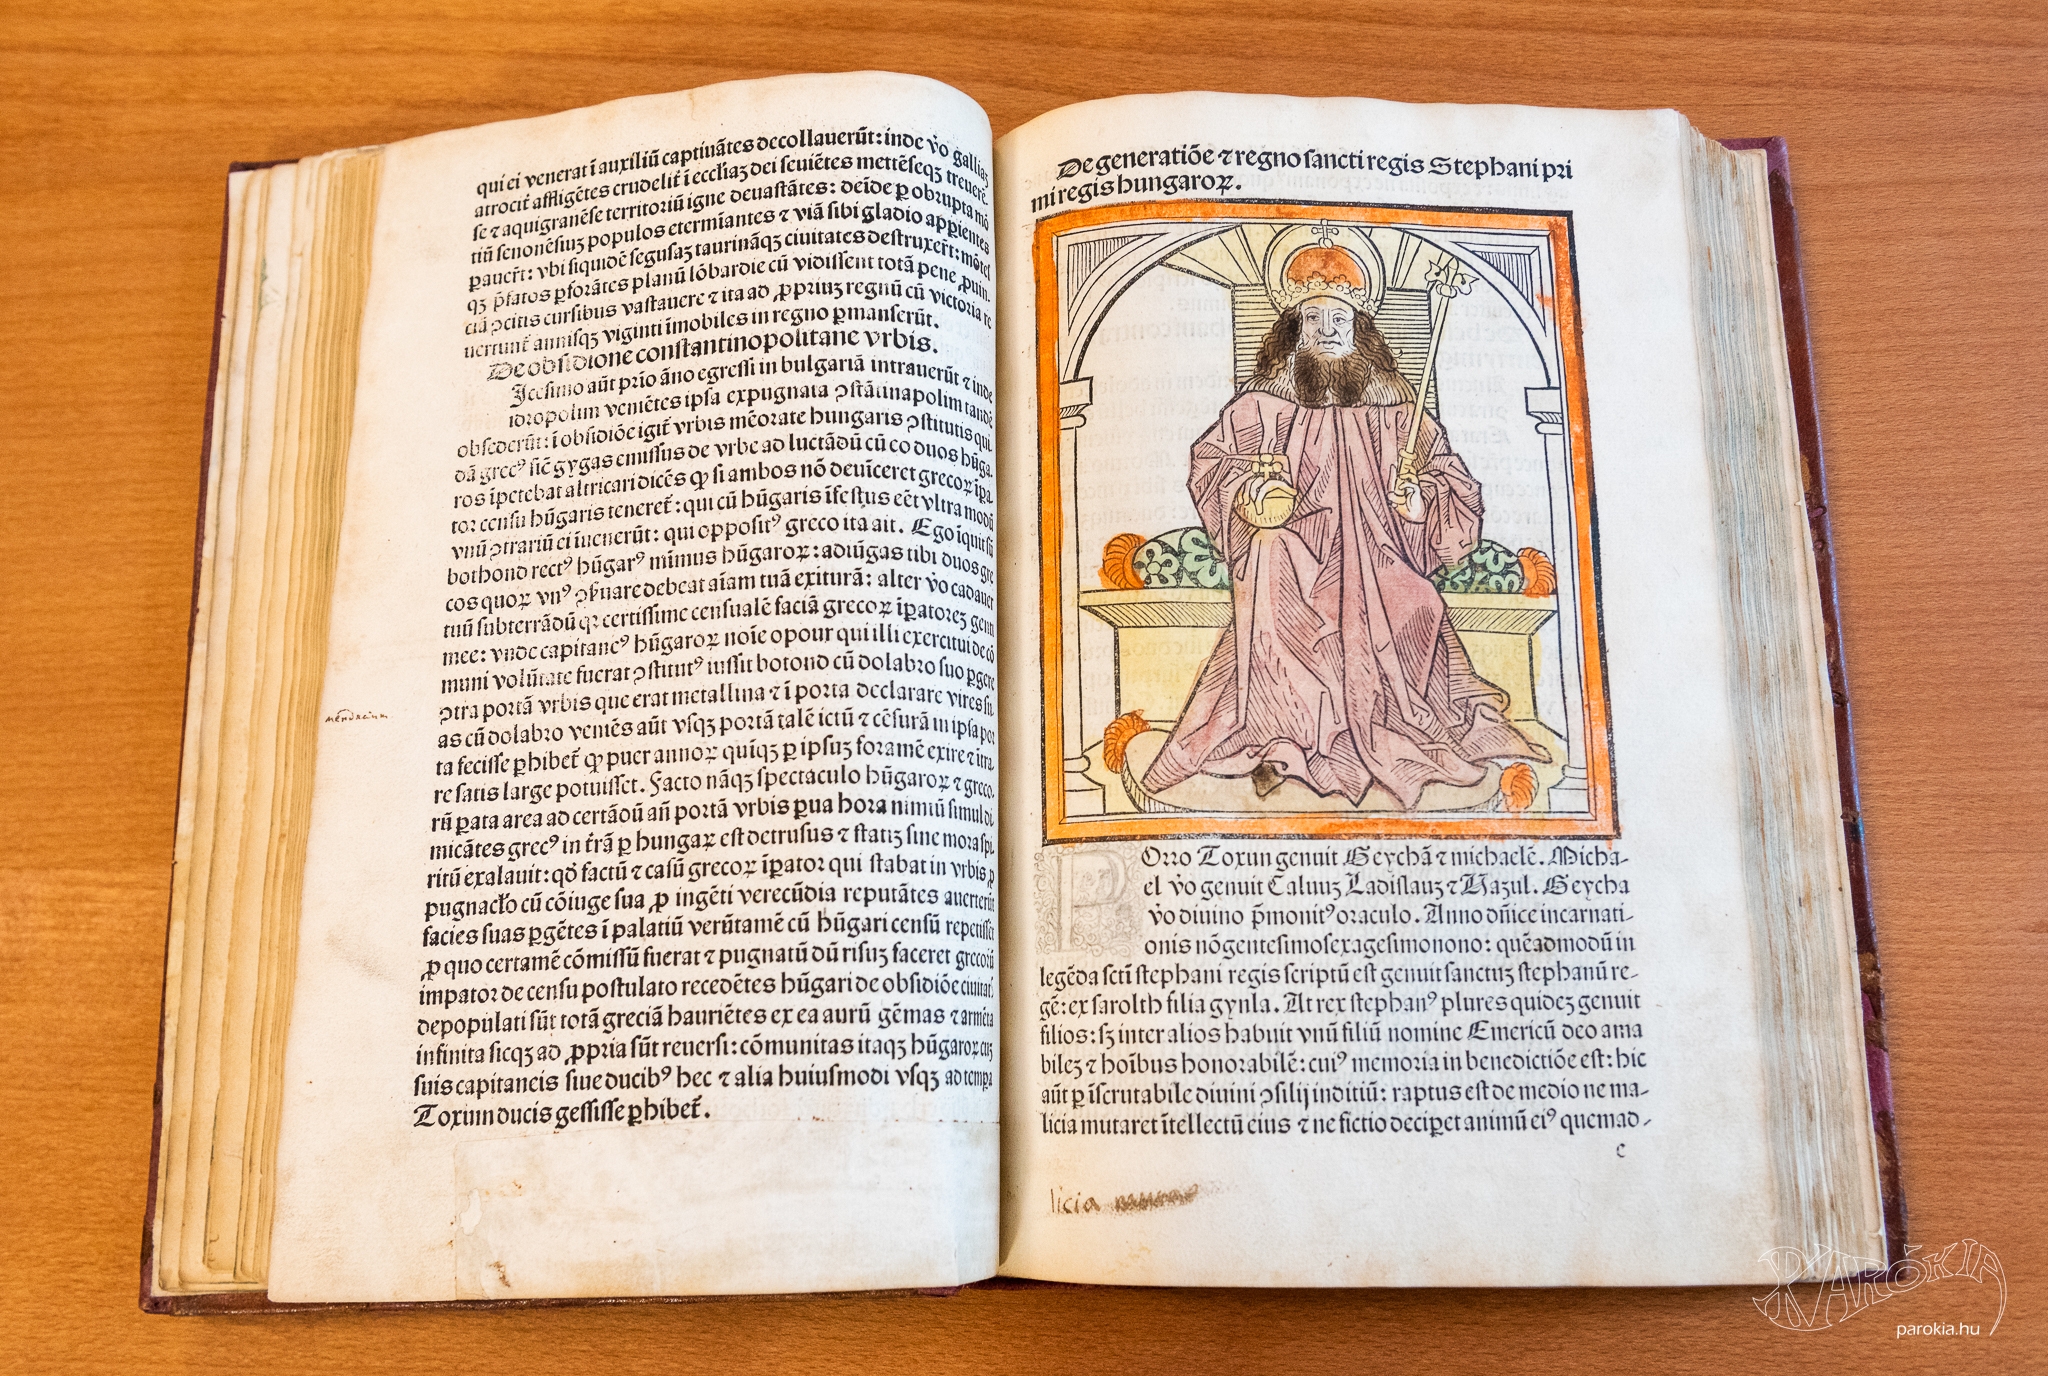 qui ei venerāt ī auxiliū captiuātes decollauerūt: inde ṽo gallias
atrocit̄ affligētes crudelit̄ ī ecclīaʒ dei seuiētes mettēseqʒ treuerē
se ⁊ aquigranēse territoriū igne deuastātes: deīde ꝑ obrupta mō
tiū senonēsiuʒ populos etermīantes ⁊ viā sibi gladio apꝑientes
ꝑauer̄t: vbi siquidē segusaʒ taurināqʒ ciuitates destruxer̄t: mōtes
qʒ p̄fatos ꝑforātes planū lōbardie cū vidissent totā pene ꝓuin.
ciā ꝯcitis cursibus vastauere ⁊ ita ad ꝓpriuʒ regnū cū victoria re
uertunt̄ annisqʒ viginti īmobiles in regno ꝑmanserūt.
De obsidione constantinopolitane vrbis.
Icesimo aūt prīo āno egressi in bulgariā intrauerūt ⁊ inde
idropolim veniētes ipsa expugnata ꝯstātinapolim tandē
obsederūt: ī obsidiōe igit̄ vrbis mēorate hungaris ꝯstitutis qui.
dā grecꝰ sīē gygas emissus de vrbe ad luctādū cū eo duos hūga.
ros īpetebat altricari dicēs ꝙ si ambos nō deuīceret grecoꝝ īpa
tor censu hūgaris teneret̄: qui cū hūgaris īfestus eēt vltra modū
vnū ꝯtrariū ei īuenerūt: qui oppositꝰ greco ita ait. Ego īquit sū
bothond rectꝰ hūgarꝰ minus hūgaroꝝ: adiūgas tibi duos gre
cos quoꝝ vnꝰ ꝯẜuare debeat aīam tuā exiturā: alter ṽo cadauer
tuū subterrādū qꝛ certissime censualē faciā grecoꝝ īꝑatoreʒ genti
mee: vnde capitaneꝰ hūgaroꝝ noīe opour qui illi exercitui de cō
muni volūtate fuerat ꝯstitutꝰ iussit botond cū dolabro suo ꝑgere
ꝯtra portā vrbis que erat metallina ⁊ ī porta declarare vires su.
as cū dolabro veniēs aūt vsqʒ portā talē ictū ⁊ cēsurā in ipsa por
ta fecisse ꝑhibet̄ ꝙ puer annoꝝ quīqʒ ꝑ ipsuʒ foramē exire ⁊ ītra.
re satis large potuisset. Facto nāqʒ spectaculo hūgaroꝝ ⁊ greco.
rū ꝑata area ad certādū an̄ portā vrbis ꝑua hora nimiū simul di.
micātes grecꝰ in t̄rā ꝑ hungaꝝ est detrusus ⁊ statiʒ sine mora spi.
ritū exalauit: qđ factū ⁊ casū grecoꝝ īꝑator qui stabat in vrbis ꝓ
pugnacło cū cōiuge sua ꝓ ingēti verecūdia reputātes auerterūt
facies suas ꝑgētes ī palatiū verūtamē cū hūgari censū repetisset
ꝓ quo certamē cōmissū fuerat ⁊ pugnatū dū risuʒ faceret grecorū
impator de censu postulato recedētes hūgari de obsidiōe ciuitatꝭ
depopulati sūt totā greciā hauriētes ex ea aurū gēmas ⁊ armēta
infinita sicqʒ ad ꝓpria sūt reuersi: cōmunitas itaqʒ hūgaroꝝ cuʒ
suis capitaneis siue ducibꝰ hec ⁊ alia huiusmodi vsqʒ ad tempa
Toxun ducis gessisse ꝑhibet̄.
De generatiōe ⁊ regno sancti regis Stephani pri
mi regis hungaroꝝ.
POrro Toxun genuit Geychā ⁊ michaelē. Micha-
el ṽo genuit Caluuʒ Ladislauʒ ⁊ Vazul. Geycha
ṽo diuino p̄monitꝰ oraculo. Anno dn̄ice incarnati-
onis nōgentesimosexagesimonono: quēadmodū in
legēda scti stephani regis scriptū est genuit sanctuʒ stephanū re-
gē: ex sarolth filia gynla. At rex stephanꝰ plures quideʒ genuit
filios: sʒ inter alios habuit vnū filiū nomine Emericū deo ama
bileʒ ⁊ hoībus honorabilē: cuiꝰ memoria in benedictiōe est: hic
aūt ꝑ īscrutabile diuini ꝯsilij inditiū: raptus est de medio ne ma-
licia mutaret ītellectū eius ⁊ ne fictio decipet animū eiꝰ quemad-
c
licia
PARÓKIA
parokia.hu